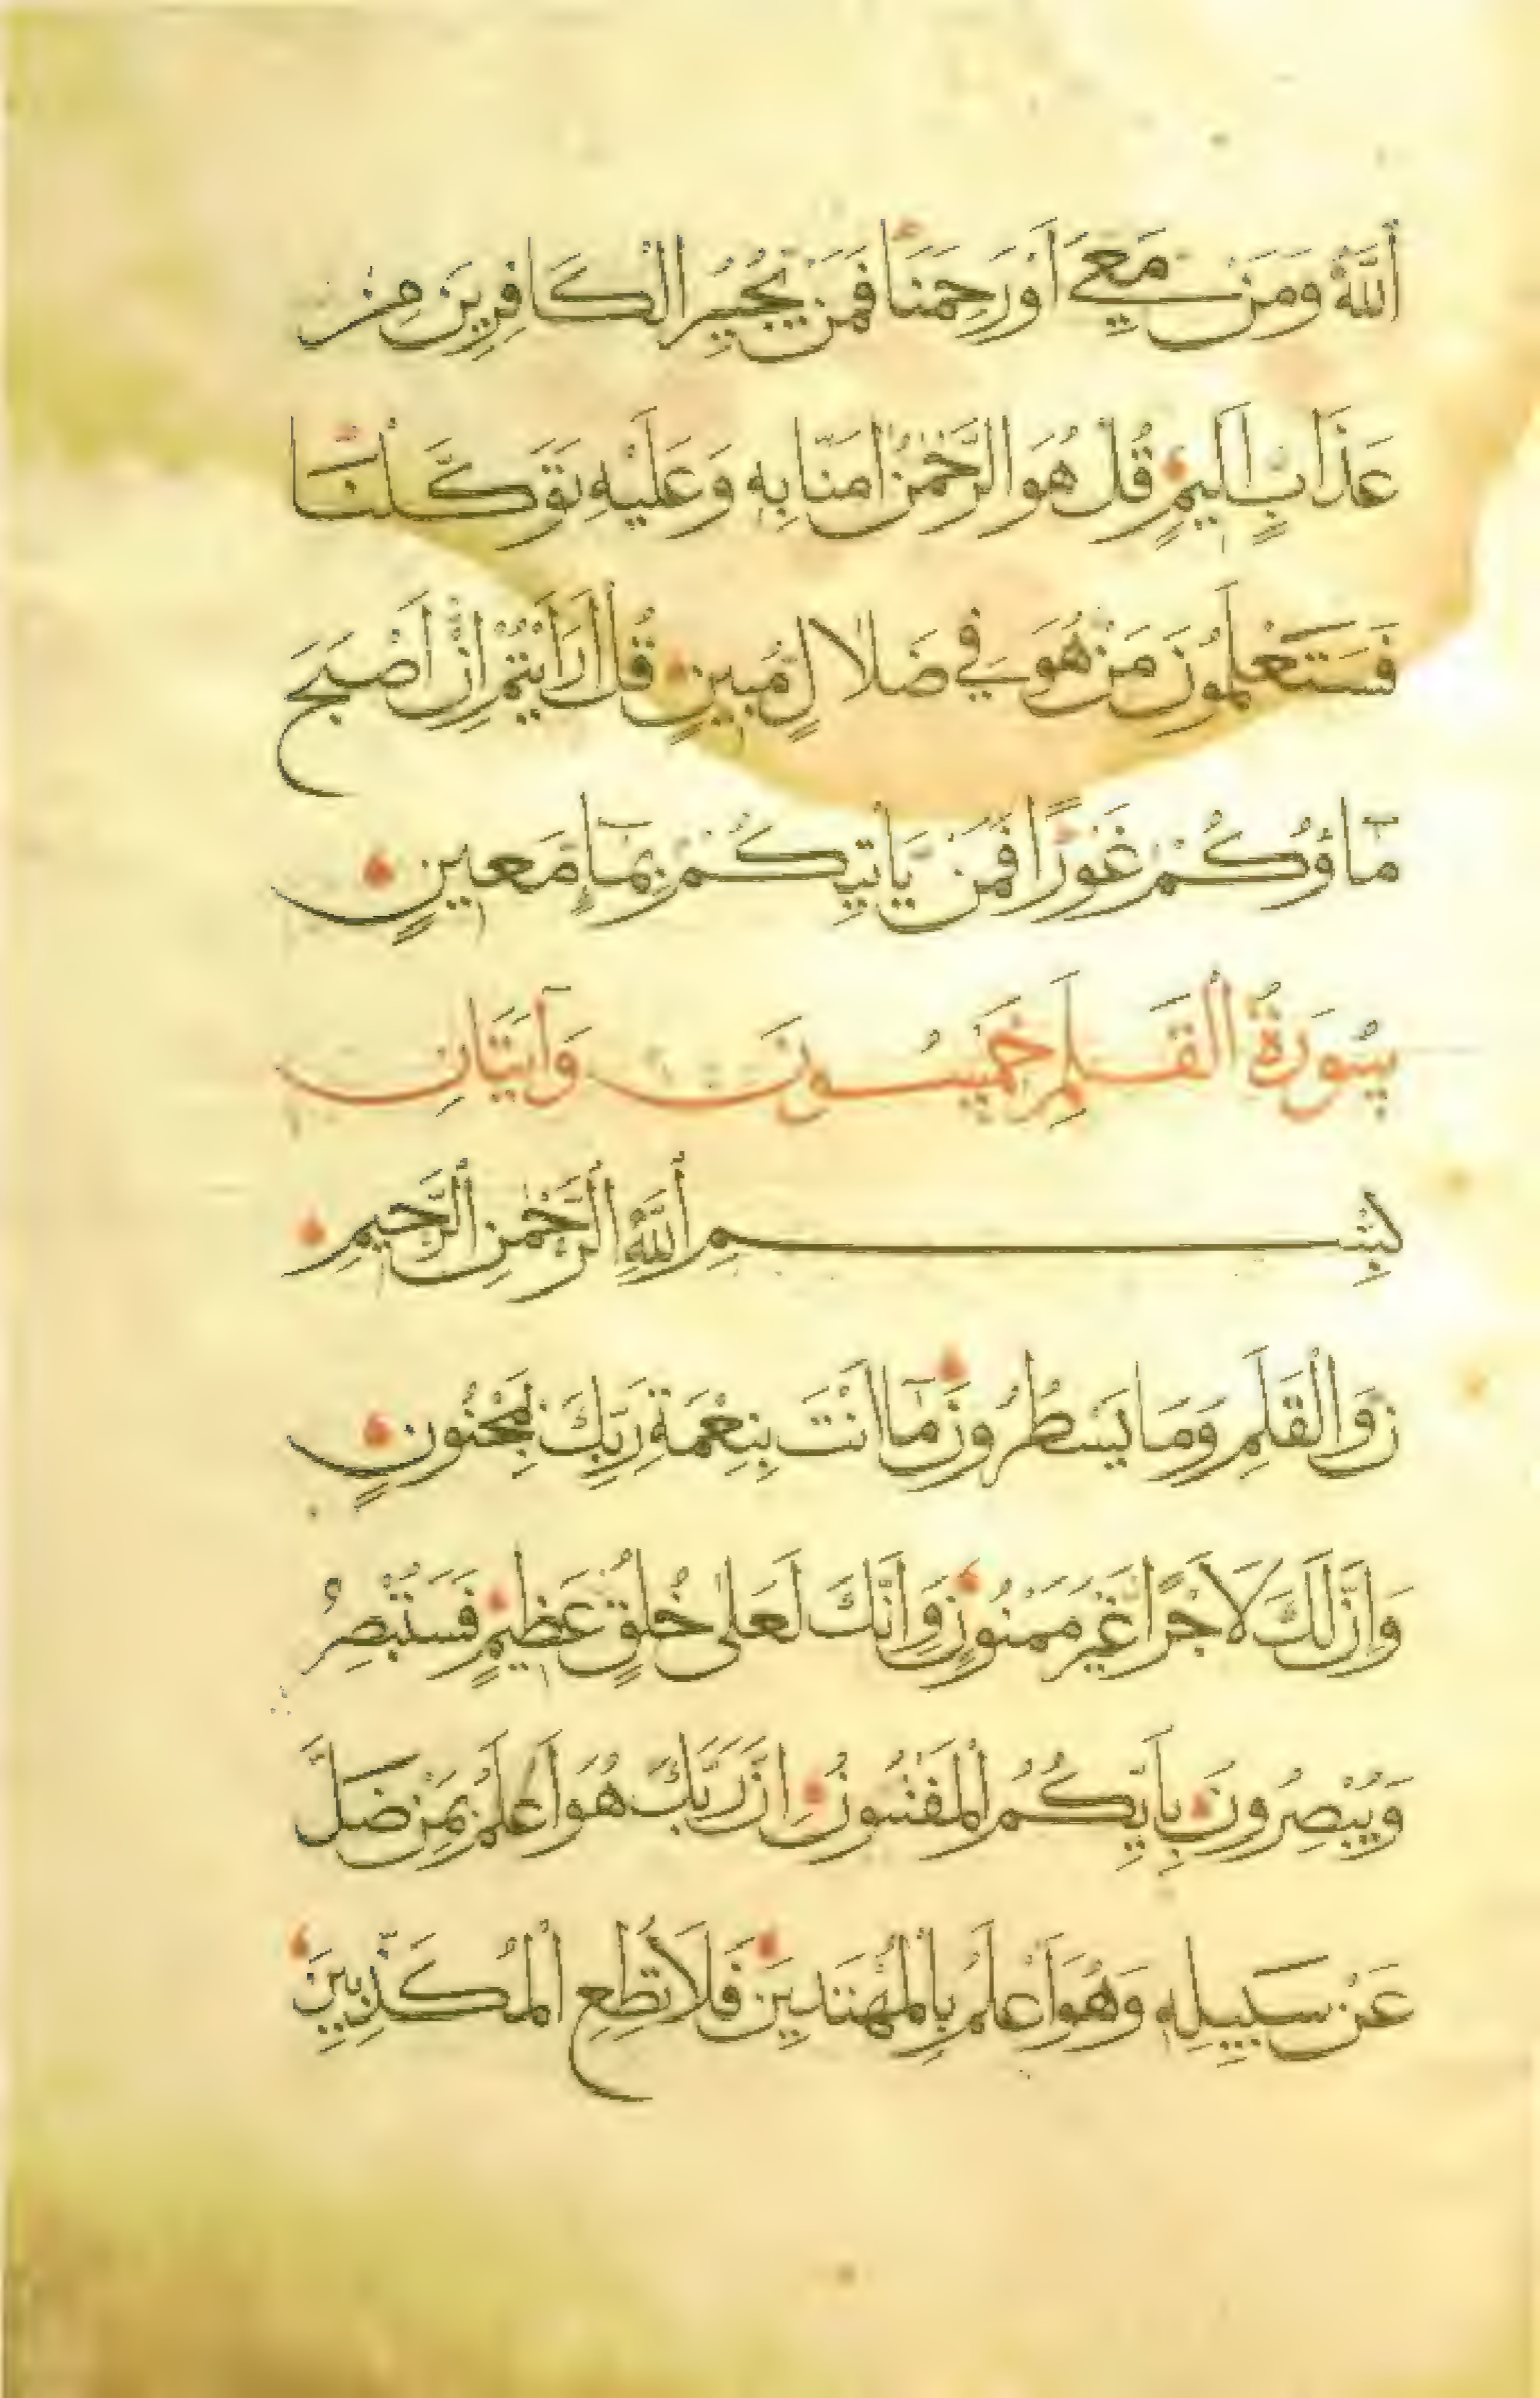 اَللّٰهُ وَمَنْ مَعِيَ اَوْ رَحِمَنَا فَمَنْ يُجِيْرُ الْكَافِرِيْنَ مِنْ
عَذَابٍ اَلِيْمٍ قُلْ هُوَ الرَّحْمٰنُ اٰمَنَّا بِهٖ وَعَلَيْهِ تَوَكَّلْنَا
فَسَتَعْلَمُوْنَ مَنْ هُوَ فِي ضَلَالٍ مُبِيْنٍ قُلْ اَرَاَيْتُمْ اِنْ اَصْبَحَ
مَاؤُكُمْ غَوْرًا فَمَنْ يَاْتِيْكُمْ بِمَاءٍ مَعِيْنٍ
سُوْرَةُ الْقَلَمِ خَمْسُوْنَ وَآيَتَانِ
بِسْمِ اللّٰهِ الرَّحْمٰنِ الرَّحِيْمِ
نْ وَالْقَلَمِ وَمَا يَسْطُرُوْنَ مَا اَنْتَ بِنِعْمَةِ رَبِّكَ بِمَجْنُوْنٍ
وَاِنَّ لَكَ لَاَجْرًا غَيْرَ مَمْنُوْنٍ وَاِنَّكَ لَعَلٰى خُلُقٍ عَظِيْمٍ فَسَتُبْصِرُ
وَيُبْصِرُوْنَ بِاَيِّكُمُ الْمَفْتُوْنُ اِنَّ رَبَّكَ هُوَ اَعْلَمُ بِمَنْ ضَلَّ
عَنْ سَبِيْلِهٖ وَهُوَ اَعْلَمُ بِالْمُهْتَدِيْنَ فَلَا تُطِعِ الْمُكَذِّبِيْنَ